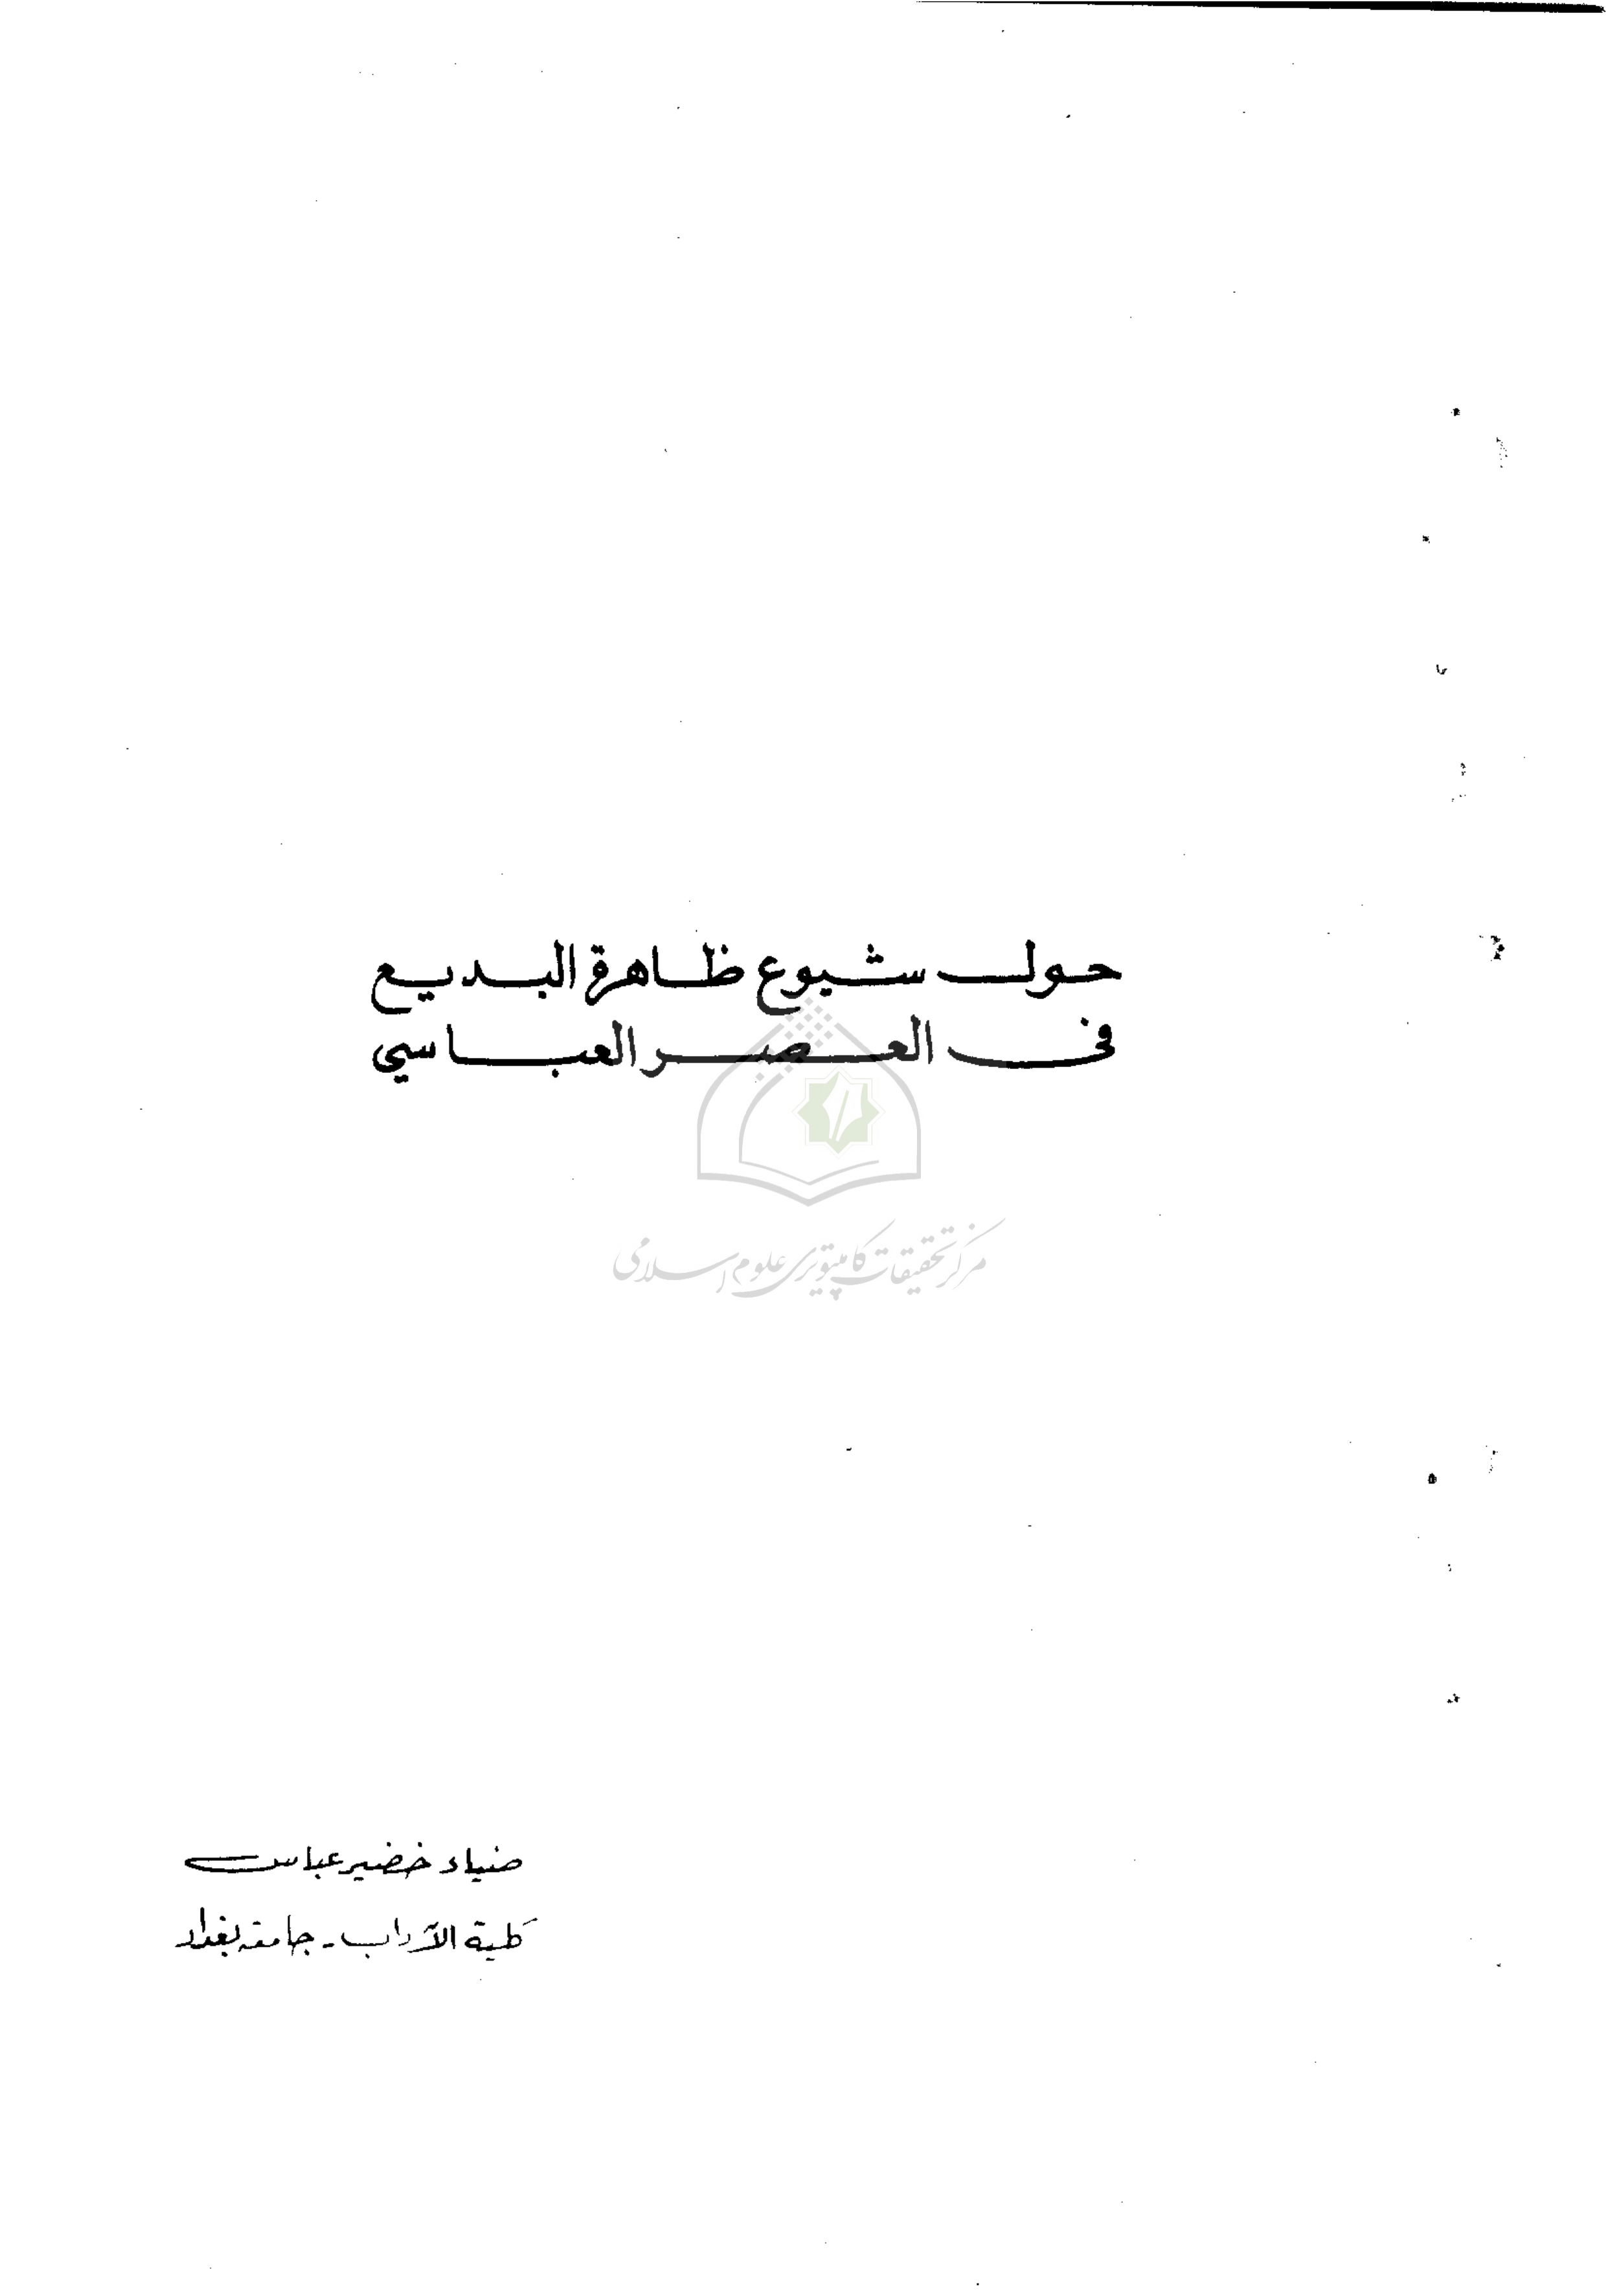 حول شيوع ظاهرة البديع
في العصر العباسي
مركز تحقيقات كامپيوتري علوم اسلامي
ضياء خضير عباس
كلية الآداب - جامعة بغداد